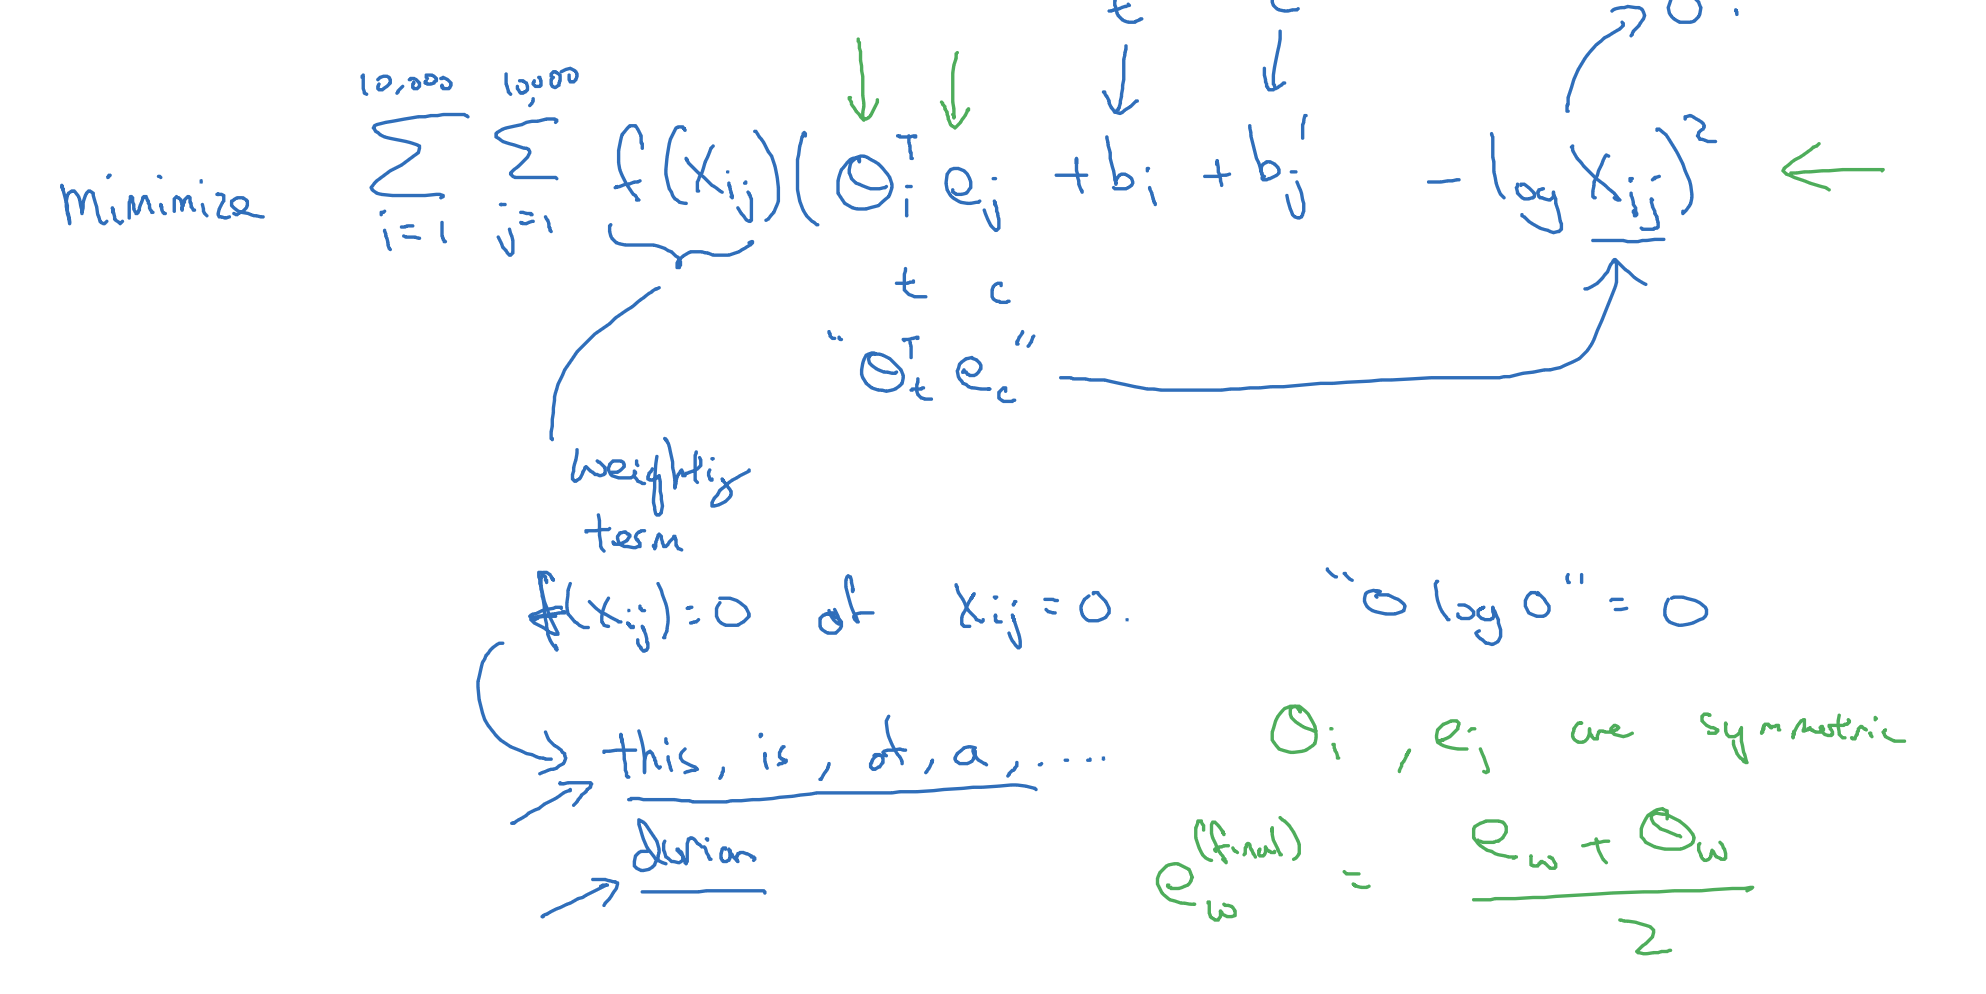 t c 0.
minimize 10,000 ∑ i=1 10,000 ∑ j=1 f(Xij)(Θi^T ej + bi + bj' - log Xij)^2
t c
"Θt^T ec"
weighting
term
f(Xij)=0 of Xij=0. "0 log 0" = 0
this, is, of, a, ....
Θi, ej are symmetric
durian
ew^(final) = (ew + Θw) / 2